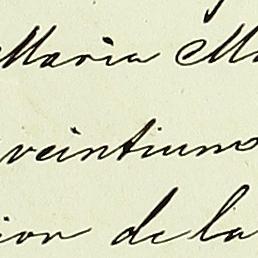 Maria M
veintiuno
ion de la